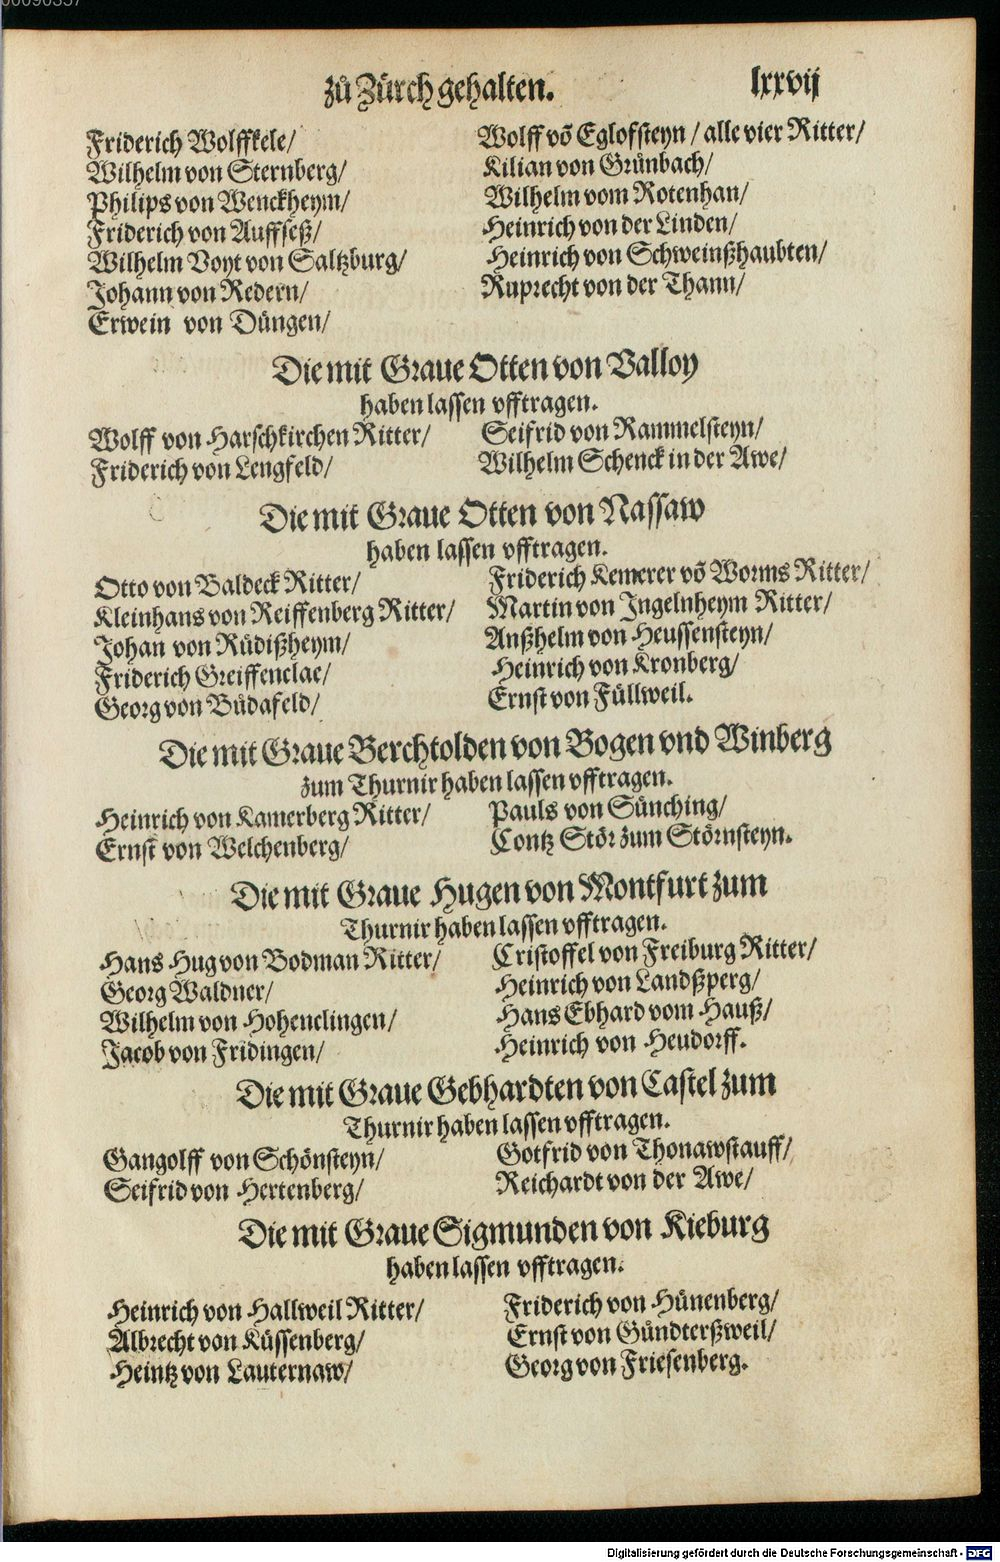 00090357
zů Zürch gehalten. lxxvij
Friderich Wolffkele/
Wilhelm von Sternberg/
Philips von Wenckheym/
Friderich von Auffseß/
Wilhelm Voyt von Saltzburg/
Johann von Redern/
Erwein von Düngen/
Wolff võ Eglofsteyn / alle vier Ritter/
Kilian von Grůnbach/
Wilhelm vom Rotenhan/
Heinrich von der Linden/
Heinrich von Schweinßhaubten/
Ruprecht von der Thann/
Die mit Graue Otten von Valloy
haben lassen vfftragen.
Wolff von Harschkirchen Ritter/
Friderich von Lengfeld/
Seifrid von Rammelsteyn/
Wilhelm Schenck in der Awe/
Die mit Graue Otten von Nassaw
haben lassen vfftragen.
Otto von Baldeck Ritter/
Kleinhans von Reiffenberg Ritter/
Johan von Rüdißheym/
Friderich Greiffenclae/
Georg von Bůdafeld/
Friderich Kemerer võ Worms Ritter/
Martin von Ingelnheym Ritter/
Anßhelm von Heussensteyn/
Heinrich von Kronberg/
Ernst von Füllweil.
Die mit Graue Berchtolden von Bogen vnd Winberg
zum Thurnir haben lassen vfftragen.
Heinrich von Kamerberg Ritter/
Ernst von Welchenberg/
Pauls von Sünching/
Contz Stör zum Störnsteyn.
Die mit Graue Hugen von Montfurt zum
Thurnir haben lassen vfftragen.
Hans Hug von Bodman Ritter/
Georg Waldner/
Wilhelm von Hohenclingen/
Jacob von Fridingen/
Cristoffel von Freiburg Ritter/
Heinrich von Landßperg/
Hans Ebhard vom Hauß/
Heinrich von Heudorff.
Die mit Graue Gebhardten von Castel zum
Thurnir haben lassen vfftragen.
Gangolff von Schönsteyn/
Seifrid von Hertenberg/
Gotfrid von Thonawstauff/
Reichardt von der Awe/
Die mit Graue Sigmunden von Kieburg
haben lassen vfftragen.
Heinrich von Hallweil Ritter/
Albrecht von Küssenberg/
Heintz von Lauternaw/
Friderich von Hünenberg/
Ernst von Gündterßweil/
Georg von Friesenberg.
Digitalisierung gefördert durch die Deutsche Forschungsgemeinschaft - DFG